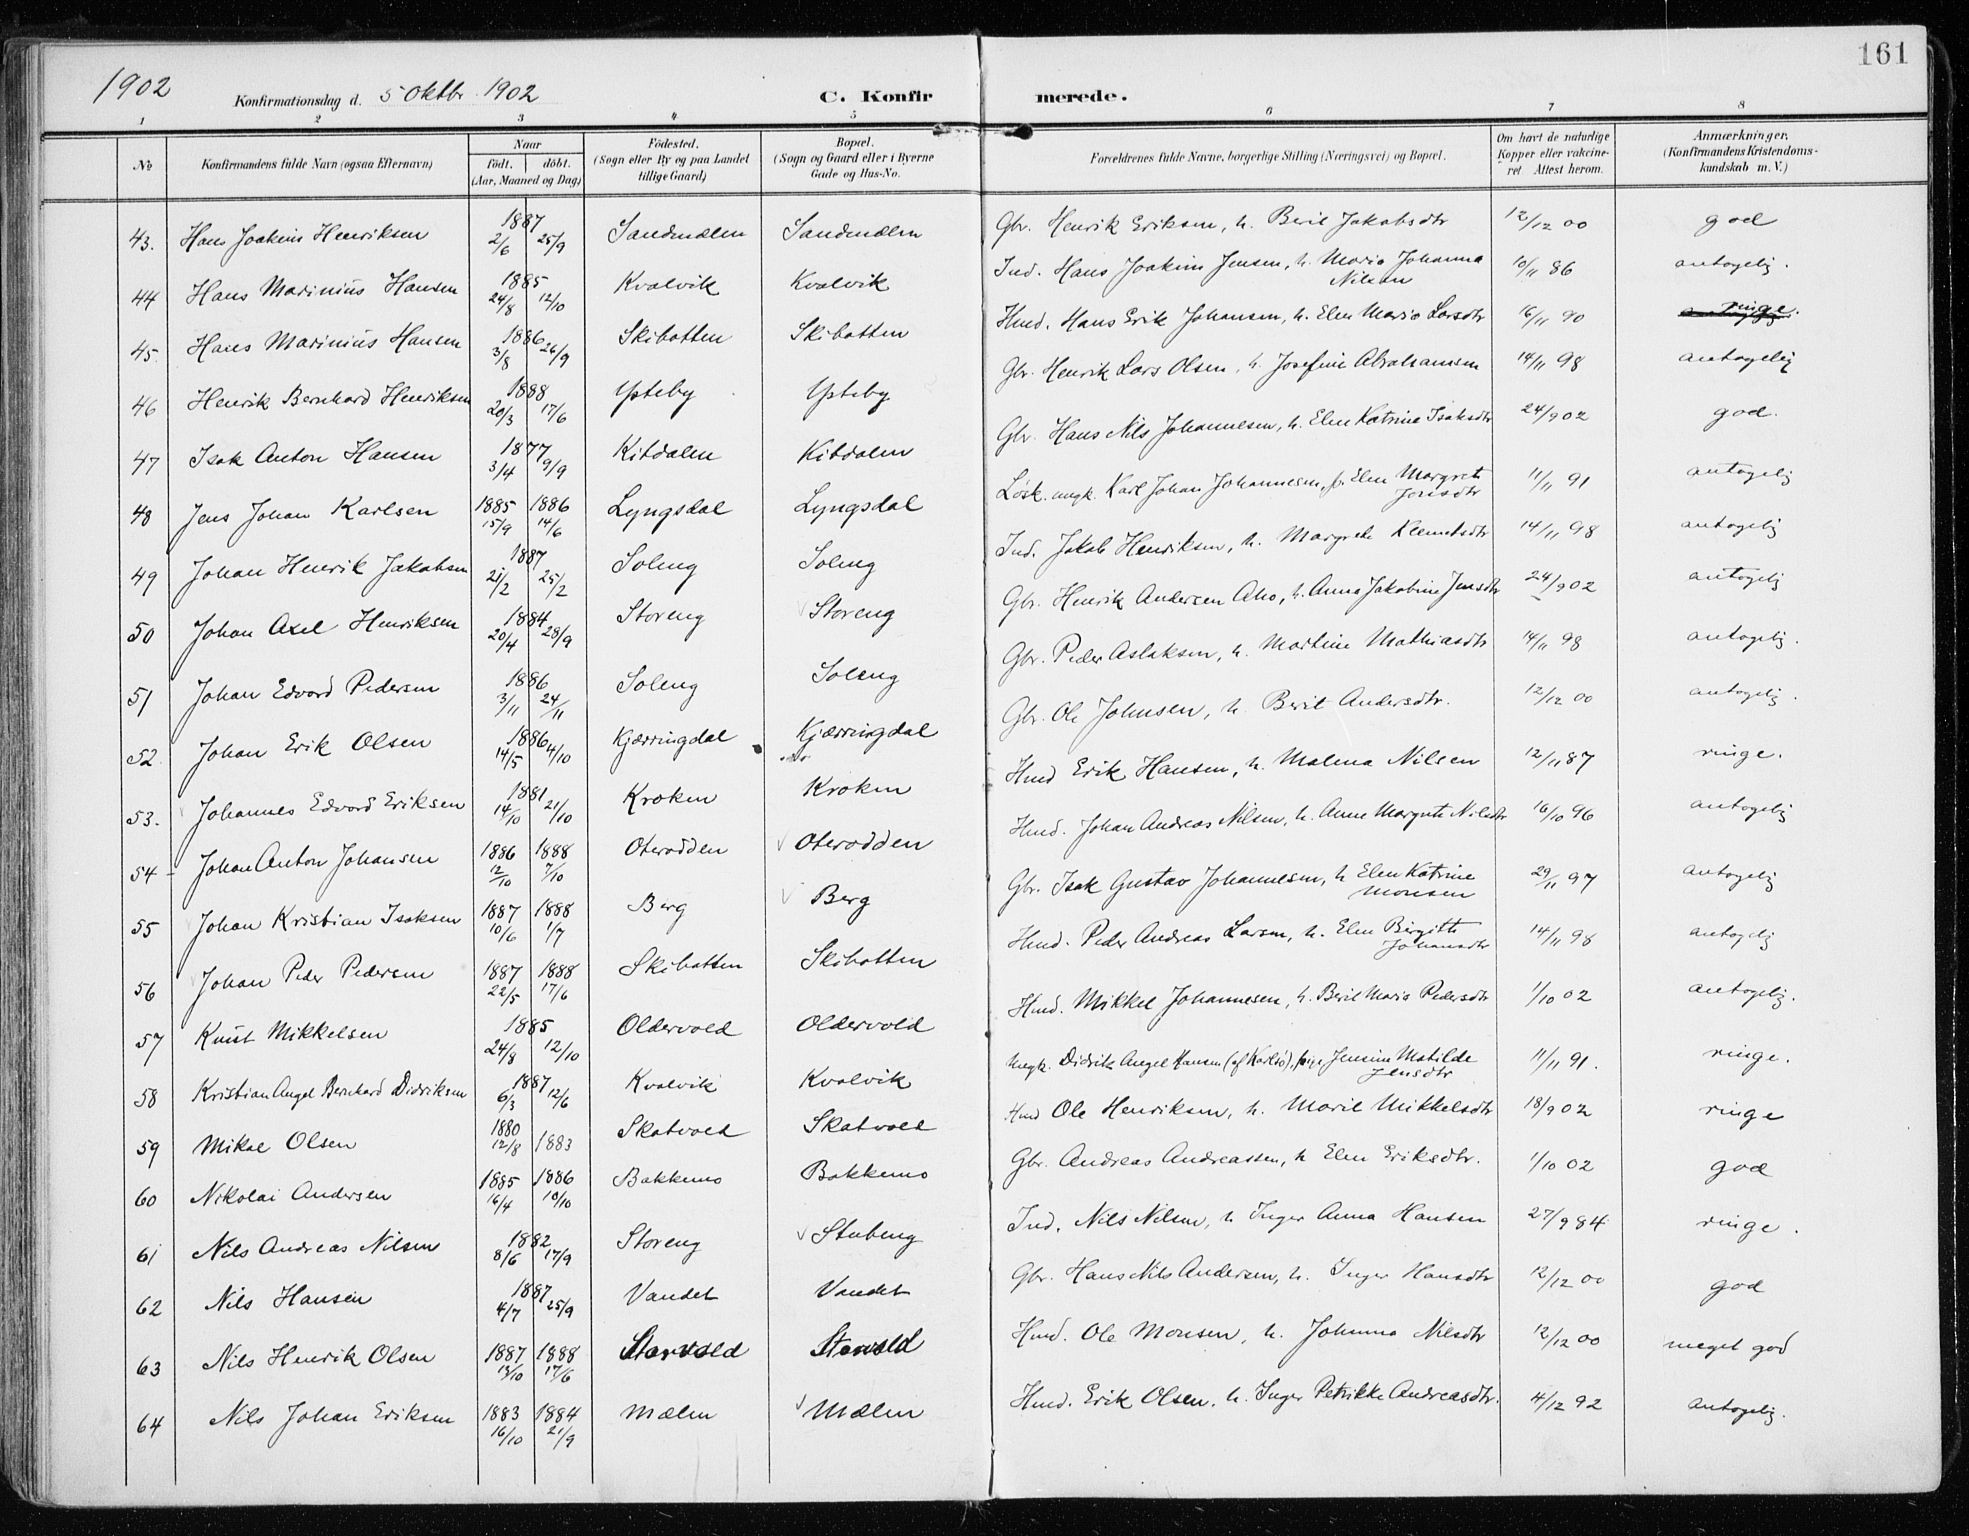 161
1902 Konfirmationsdag d. 5 Oktbr 1902 C. Konfirmerede.
1 2 3 4 5 6 7 8
No Konfirmandens fulde Navn (ogsaa Efternavn) Naar født. døbt. (Aar, Maaned og Dag) Fødested. (Sogn eller By og paa Landet tillige Gaard) Bopæl. (Sogn og Gaard eller i Byerne Gade og Hus-No. Forældrenes fulde Navne, borgerlige Stilling (Næringsvei) og Bopæl. Om havt de naturlige Kopper eller vakcineret. Attest herom. Anmærkninger, (Konfirmandens Kristendomskundskab m. V.)
43. Hans Joakim Henriksen 1887 2/6 25/9 Sandmælen Sandmælen Gbr. Henrik Eriksen, h. Berit Jakobsdtr 12/12 00 god
44 Hans Marinius Hansen 1885 24/8 12/10 Kvalvik Kvalvik Ind. Hans Joakim Jensen, h. Maria Johanna Nilsen 10/11 86 antagelig.
45. Hans Marinius Hansen 1886 3/8 26/9 Skibotten Skibotten Hmd. Hans Erik Johansen, h. Elen Maria Larsdtr 16/11 90 ringe.
46 Henrik Bernhard Henriksen 1888 20/3 17/6 Ypteby Ypteby Gbr. Henrik Lars Olsen, h. Josefine Abrahamsen 14/11 98 antagelig
47 Isak Anton Hansen 1877 3/4 9/9 Kitdalen Kitdalen Gbr. Hans Nils Johannesen, h. Elen Katrine Isaksdtr 24/9 02 god.
48 Jens Johan Karlsen 1885 15/9 1886 14/6 Lyngsdal Lyngsdal Løsk. ungk. Karl Johan Johannesen, p. Elen Margrete Jonsdtr 11/11 91 antagelig
49 Johan Henrik Jakobsen 1887 21/2 25/2 Soleng Soleng Ind. Jakob Henriksen, h. Margrete Klemetsdtr 14/11 98 antagelig
50 Johan Axel Henriksen 1884 20/4 28/9 Storeng Storeng Gbr. Henrik Andersen Aho, h. Anna Jakobine Jensdtr 24/9 02 antagelig
51 Johan Edvard Pedersen 1886 3/11 24/11 Soleng Soleng Gbr. Peder Aslaksen, h. Martine Mathiasdtr 14/11 98 antagelig.
52 Johan Erik Olsen 1886 14/5 4/10 Kjærringdal Kjærringdal Gbr. Ole Johnsen, h. Berit Andersdtr. 12/12 00 antagelig.
53. Johannes Edvard Eriksen 1881 14/10 21/10 Kroken Kroken Hmd Erik Hansen, h. Malena Nilsen 12/11 87 ringe.
54 Johan Anton Johansen 1886 12/10 1888 7/10 Oterodden Oterodden Hmd. Johan Andreas Nilsen, h. Anne Margrete Nilsdtr 16/10 96 antagelig
55 Johan Kristian Isaksen 1887 10/6 1888 1/7 Berg Berg Gbr. Isak Gustav Johannesen, h Elen Katrine Monsen 29/11 97 antagelig
56 Johan Peder Pedersen 1887 22/5 1888 17/6 Skibotten Skibotten Hmd. Peder Andreas Larsen, h. Elen Birgitte Johansdtr 14/11 98 antagelig
57 Knut Mikkelsen 1885 24/8 12/10 Oldervold Oldervold Hmd. Mikkel Johannesen, h. Berit Maria Pedersdtr 1/10 02 antagelig.
58 Kristian Angel Bernhard Didriksen 1887 6/3 12/6 Kvalvik Kvalvik Ungk. Didrik Angel Hansen (af Karlsø), pige Jensine Matilde Jensdtr 11/11 91. ringe.
59 Mikal Olsen 1880 12/8 1883 Skatvold Skatvold Hmd Ole Henriksen, h. Marit Mikkelsdtr 18/9 02 ringe
60 Nikolai Andersen 1885 16/4 1886 10/10 Bakkemo Bakkemo Gbr. Andreas Andreassen, h Elen Eriksdtr. 1/10 02 god
61 Nils Andreas Nilsen 1882 8/6 17/9 Storeng Stubeng Ind. Nils Nilsen, h Inger Anna Hansen 27/9 84 ringe.
62 Nils Hansen 1887 4/7 25/9 Vandet Vandet Gbr. Hans Nils Andersen, h. Inger Hansdtr 12/12 00 god
63 Nils Henrik Olsen 1887 13/10 1888 17/6 Storvold Storvold Hmd. Ole Monsen, h. Johanna Nilsdtr 12/12 00 meget god
64 Nils Johan Eriksen 1883 16/10 1884 21/9 Mælen Mælen Hmd. Erik Olsen, h. Inger Petrikke Andreasdtr. 4/12 92 antagelig.